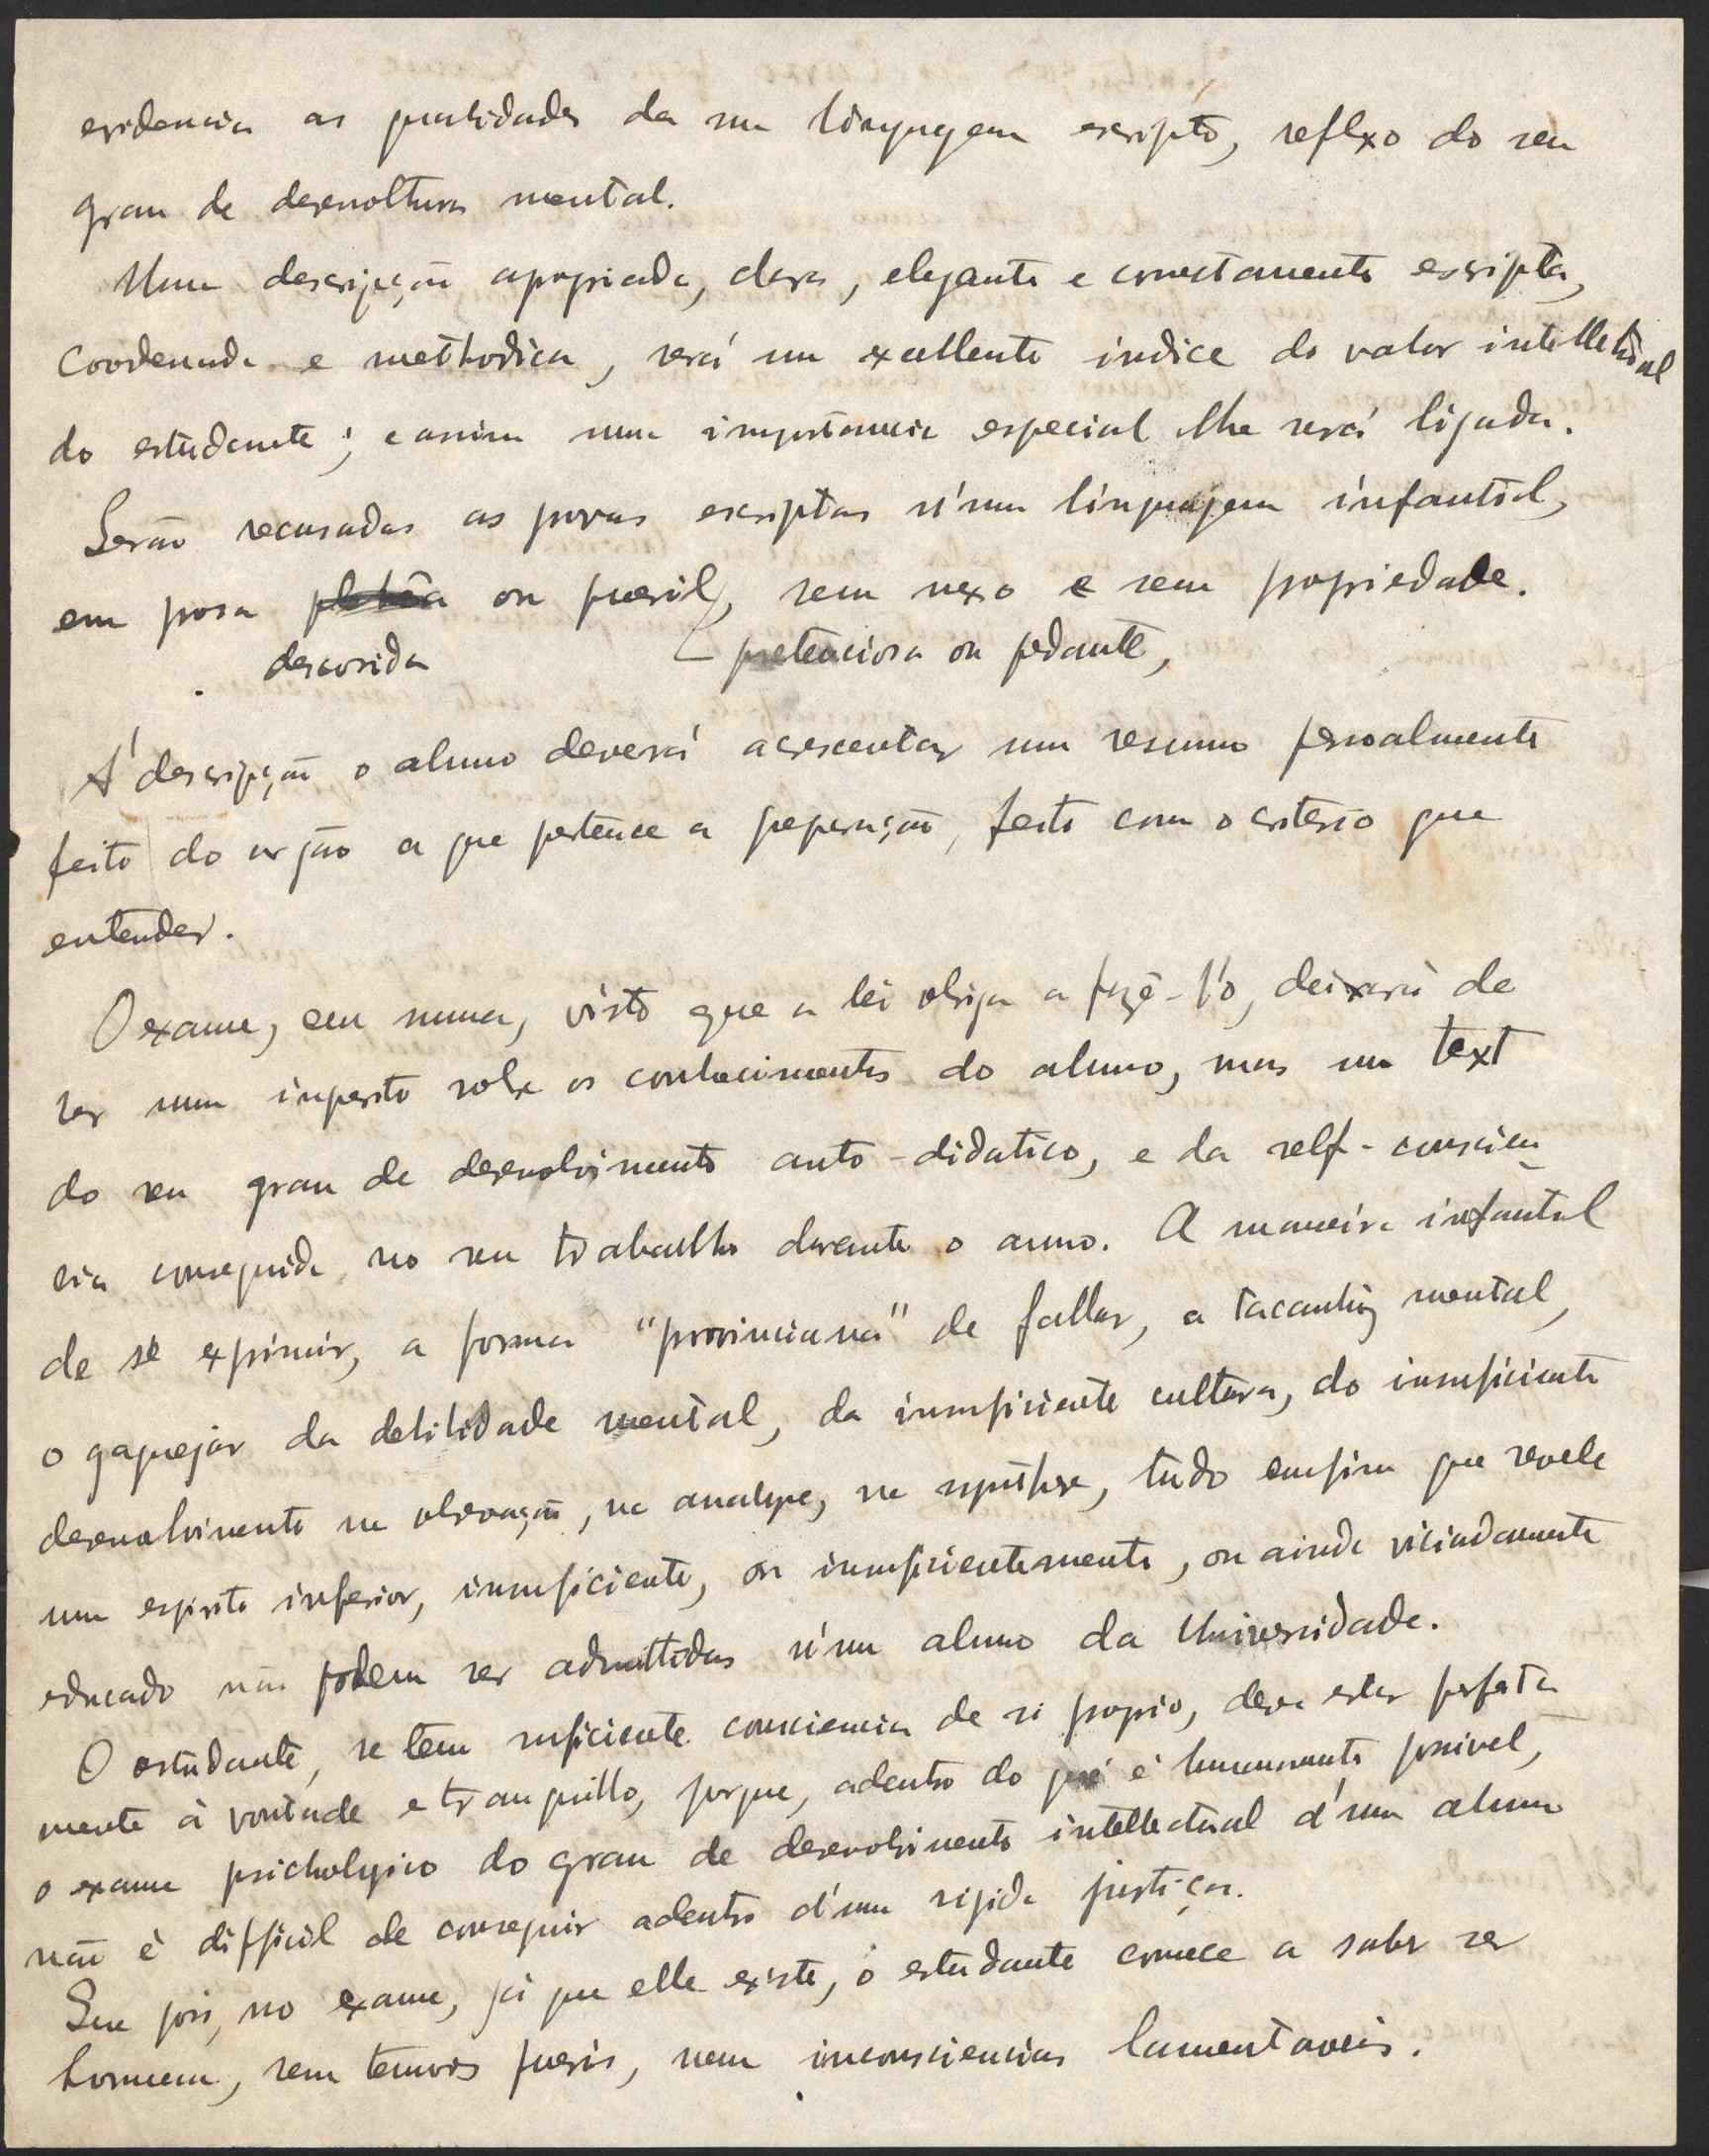 evidencia as qualidades da sua linguagem escripta, reflexo do seu
grau de desenvoltura mental.
Uma descripção apropriada, clara, elegante e correctamente escripta,
coordenada e methodica, será um excellente indice do valor intellectual
do estudante; e assim uma importancia especial lhe será ligada.
Serão recusadas as provas escriptas n'uma linguagem infantil,
em prosa ou pueril, sem nexo e sem propriedade.
descosida pretenciosa ou pedante,
Á descripção o aluno deverá acrescentar um resumo pessoalmente
feito do orgão a que pertence a preparação, feito com o criterio que
entender.
O exame, em summa, visto que a lei obriga a fazê-l'o, deixará de
ser um inquerito sobre os conhecimentos do aluno, mas um text
do seu grau de desenvolvimento auto-didatico, e da self-conscien
cia conseguida no seu trabalho durante o anno. A maneira infantil
de se exprimir, a forma "provinciana" de fallar, a tacanhez mental,
o gaguejar da debilidade mental, da insuficiente cultura, do insuficiente
desenvolvimento na observação, na analyse, na synthese, tudo emfim que revele
um espirito inferior, insuficiente, ou insuficientemente, ou ainda viciadamente
educado não podem ser admittidas n'um aluno da Universidade.
O estudante, se tem suficiente consciencia de si proprio, deve estar perfeita
mente à vontade e tranquillo, porque, adentro do que é humanamente possivel,
o exame psichologico do grau de desenvolvimento intellectual d'um aluno
não é difficil de conseguir adentro d'uma rigida justiça.
Que pois, no exame, já que elle existe, o estudante comece a saber ser
homem, sem temores pueris, nem inconsciencias lamentaveis.